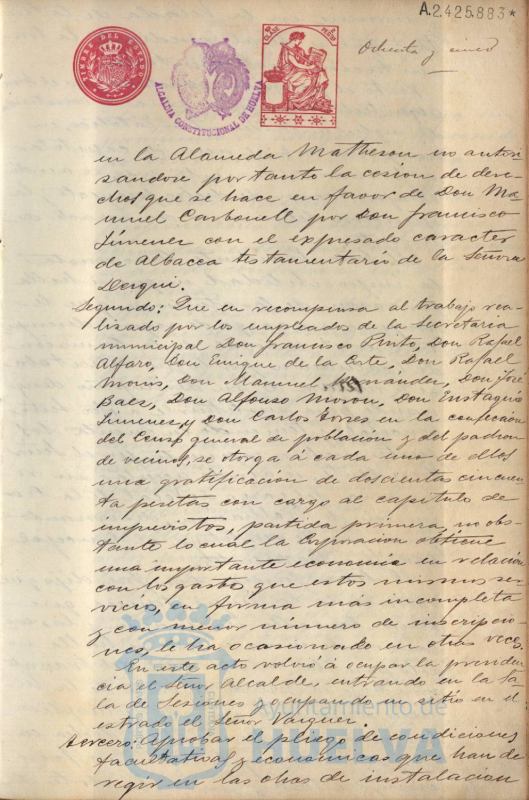 A.2.425.883*
TIMBRE DEL ESTADO
ALCALDIA CONSTITUCIONAL DE HUELVA
Ochenta y cinco
en la Alameda Matheson no autori
sandose por tanto la cesion de dere-
chos que se hace en favor de Don Ma-
nuel Carbonell por Don Francisco
Jimenez con el expresado caracter
de Albacea testamentario de la Señora
Segundo: Que en recompensa al trabajo rea-
lizado por los empleados de la Secretaria
municipal Don Francisco Pinto, Don Rafael
Alfaro, Don Enrique de la Corte, Don Rafael
Monis, Don Manuel Hernández, Don José
Baez, Don Alfonso Moron, Don Eustaquio
Jimenez, y Don Carlos Torres en la confección
del Censo general de población y del padron
de vecinos, se otorga á cada uno de ellos
una gratificación de doscientas cincuen
ta pesetas con cargo al capitulo de
imprevistos, partida primera, no obs-
tante lo cual la Corporacion obtiene
una importante economia en relacion
con los gastos que estos mismos ser-
vicios, en forma más incompleta
y con menor número de inscripcio-
nes, le ha ocasionado en otras veces.
En este acto volvió á ocupar la presiden-
cia el Señor Alcalde, entrando en la Sa-
la de Sesiones y ocupando un sitio en el
estrado el Señor Vazquez.
Tercero: Aprobar el pliego de condiciones
facultativas y económicas que han de
regir en las obras de instalacion
Ayuntamiento de
HUELVA